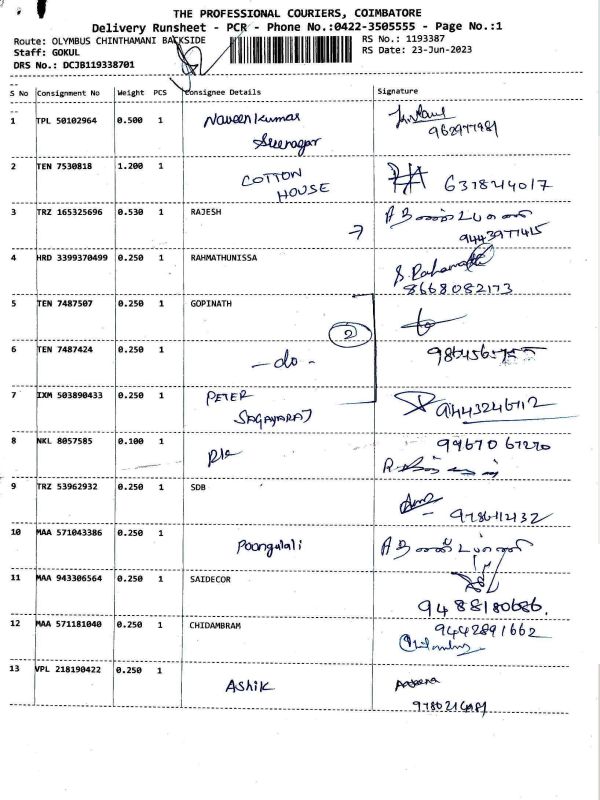 THE PROFESSIONAL COURIERS, COIMBATORE
Delivery Runsheet - PCR - Phone No.:0422-3505555 - Page No.:1
Route: OLYMBUS CHINTHAMANI BACKSIDE RS No.: 1193387
Staff: GOKUL RS Date: 23-Jun-2023
DRS No.: DCJB119338701
S No Consignment No Weight PCS Consignee Details Signature
1 TPL 50102964 0.500 1 Naveen Kumar
Sreenagar
2 TEN 7530818 1.200 1 COTTON
HOUSE 6318244017
3 TRZ 165325696 0.530 1 RAJESH
9443977415
4 HRD 3399370499 0.250 1 RAHMATHUNISSA
8668082173
5 TEN 7487507 0.250 1 GOPINATH
2
6 TEN 7487424 0.250 1 - do -
7 IXM 503890433 0.250 1 PETER
SAGAYARAJ 9443246712
8 NKL 8057585 0.100 1 9967067270
9 TRZ 53962932 0.250 1 SDB
10 MAA 571043386 0.250 1 Poongulali
11 MAA 943306564 0.250 1 SAIDECOR
9488180686.
12 MAA 571181040 0.250 1 CHIDAMBRAM 9442891662
13 VPL 218190422 0.250 1 Ashik